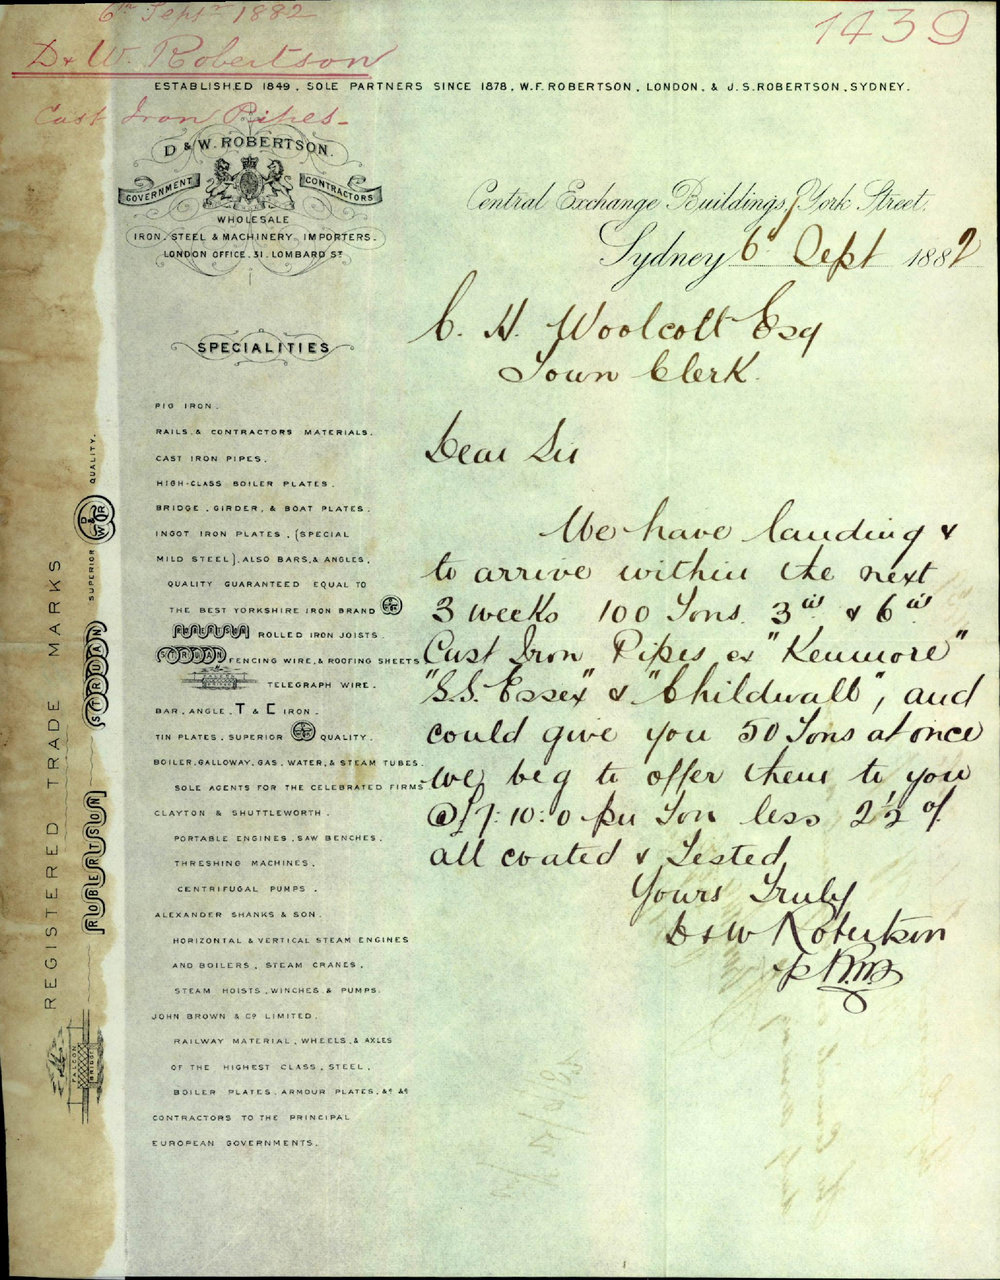 6th Septr 1882
1439
D & W. Robertson
ESTABLISHED 1849. SOLE PARTNERS SINCE 1878, W.F. ROBERTSON, LONDON, & J.S. ROBERTSON, SYDNEY.
Cast Iron Pipes
D & W. ROBERTSON.
GOVERNMENT CONTRACTORS
WHOLESALE
IRON, STEEL & MACHINERY, IMPORTERS.
LONDON OFFICE, 31, LOMBARD ST
Central Exchange Buildings, York Street,
Sydney 6th Sept 1882
C. H. Woolcott Esq
Town Clerk.
Dear Sir
We have landing &
to arrive within the next
3 weeks 100 Tons 3in & 6in
Cast Iron Pipes ex "Kenmore"
"S.S. Essex" & "Childwall", and
could give you 50 Tons at once
we beg to offer them to you
@ £7:10:0 per Ton less 2½ %
all coated & Tested
Yours Truly
D & W Robertson
SPECIALITIES
PIG IRON.
RAILS & CONTRACTORS MATERIALS.
CAST IRON PIPES.
HIGH-CLASS BOILER PLATES.
BRIDGE, GIRDER, & BOAT PLATES.
INGOT IRON PLATES, (SPECIAL
MILD STEEL), ALSO BARS, & ANGLES,
QUALITY GUARANTEED EQUAL TO
THE BEST YORKSHIRE IRON BRAND D&WR
ROBERTSON ROLLED IRON JOISTS.
STRUAN FENCING WIRE, & ROOFING SHEETS
TELEGRAPH WIRE.
BAR, ANGLE, T & C IRON.
TIN PLATES, SUPERIOR D&WR QUALITY.
BOILER, GALLOWAY, GAS, WATER, & STEAM TUBES.
SOLE AGENTS FOR THE CELEBRATED FIRMS
CLAYTON & SHUTTLEWORTH.
PORTABLE ENGINES, SAW BENCHES.
THRESHING MACHINES,
CENTRIFUGAL PUMPS.
ALEXANDER SHANKS & SON.
HORIZONTAL & VERTICAL STEAM ENGINES
AND BOILERS, STEAM CRANES,
STEAM HOISTS, WINCHES & PUMPS.
JOHN BROWN & Co LIMITED.
RAILWAY MATERIAL, WHEELS, & AXLES
OF THE HIGHEST CLASS, STEEL,
BOILER PLATES, ARMOUR PLATES, &c &c
CONTRACTORS TO THE PRINCIPAL
EUROPEAN GOVERNMENTS.
REGISTERED TRADE MARKS
FALCON BRIDGE
ROBERTSON
STRUAN
SUPERIOR D&WR QUALITY.